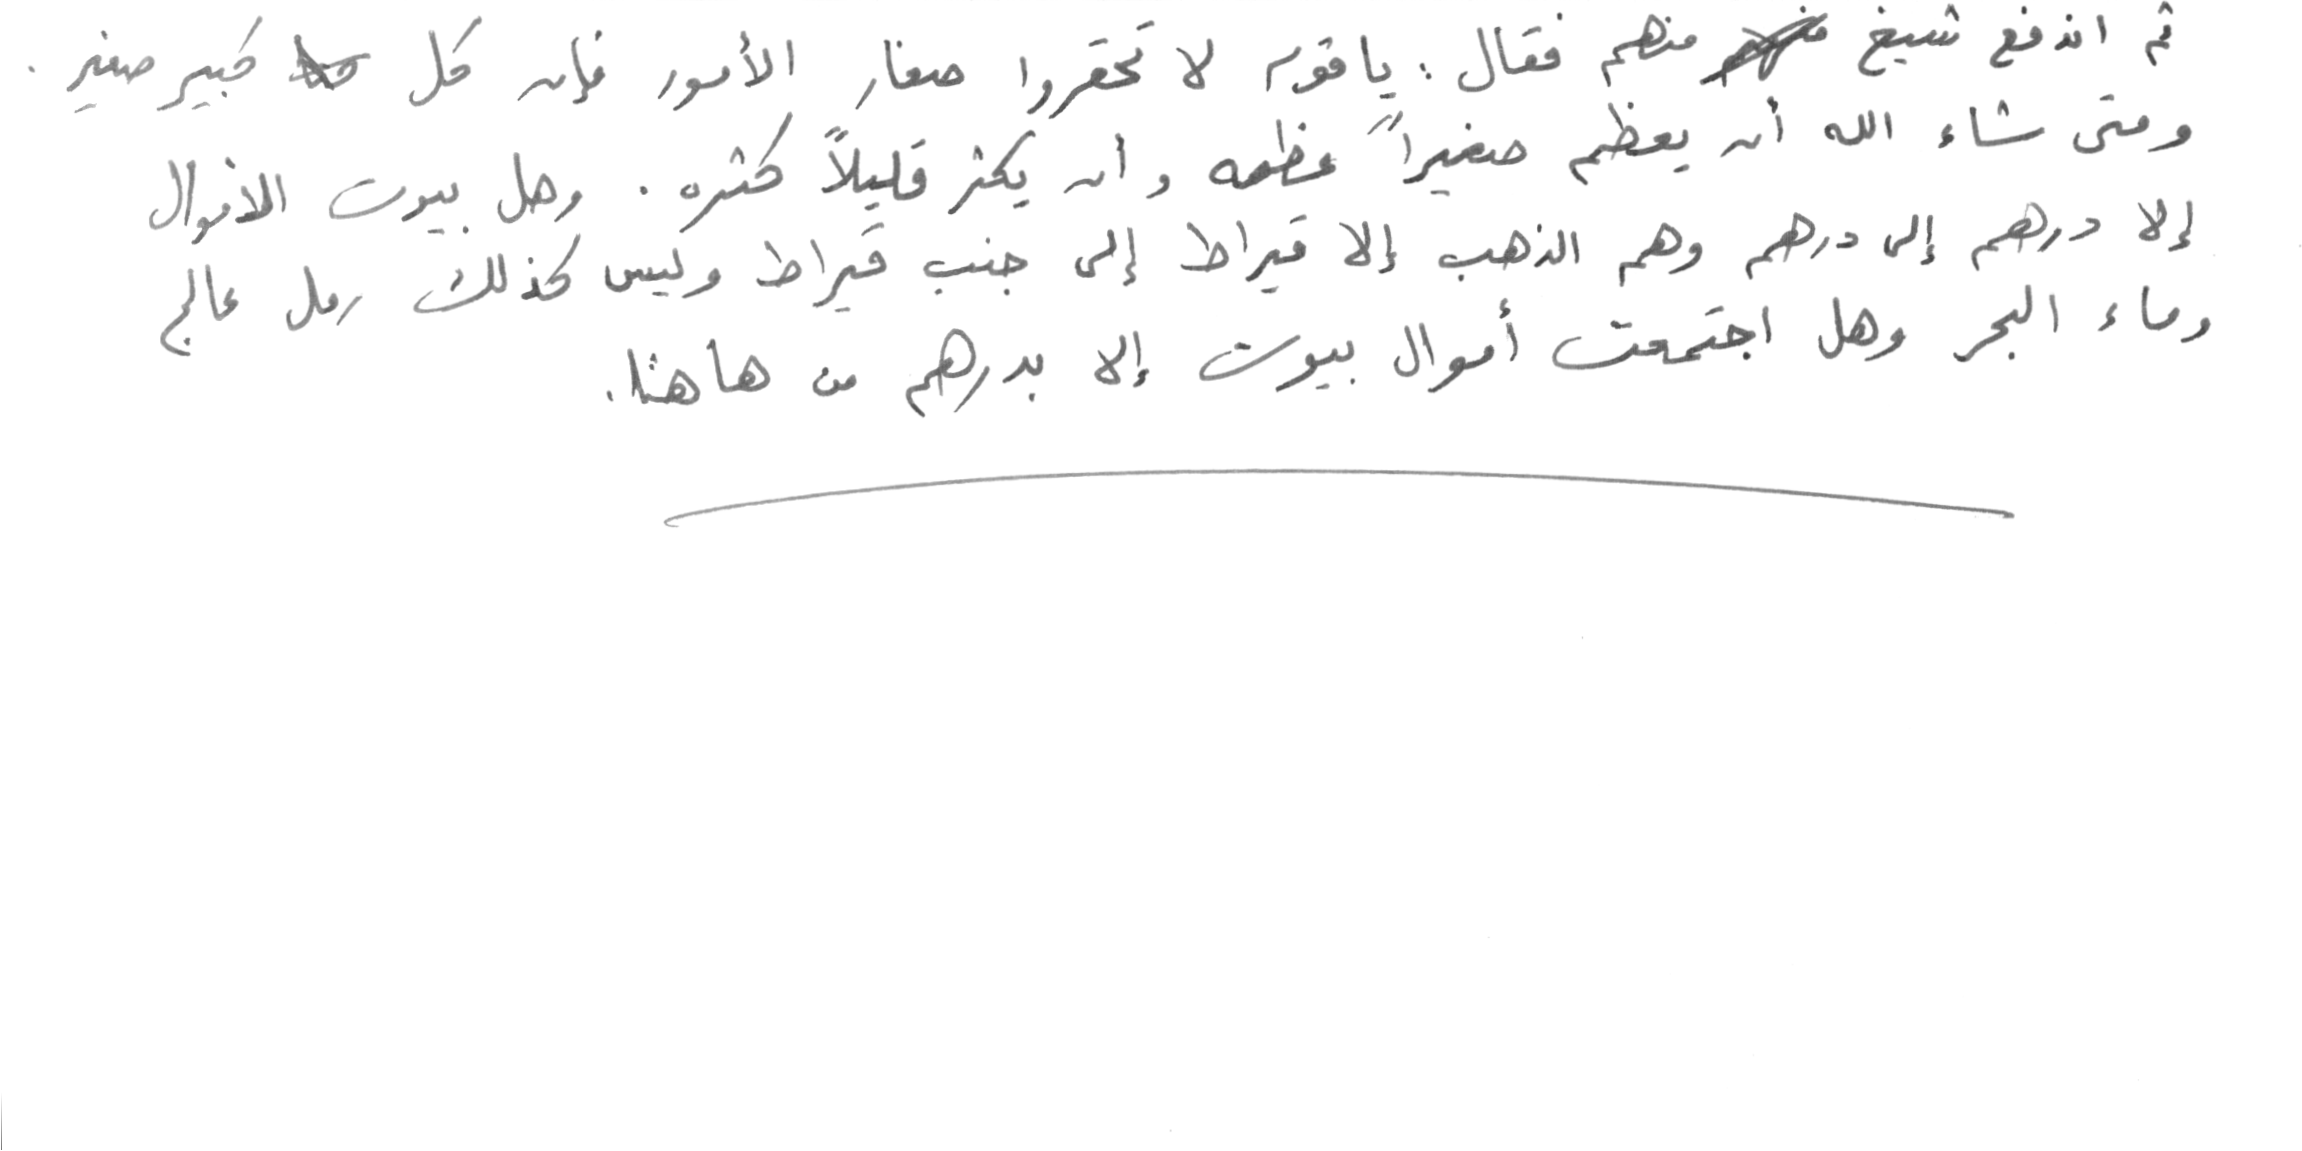 ثم اندفع شيخ منهم فقال : يا قوم لا تحقروا صغار الأمور فإن كل كبير صغير .
ومتى شاء الله أن يعظم صغيراً عظمه وأن يكثر قليلاً كثره . وهل بيوت الاموال
إلا درهم إلى درهم وهم الذهب إلا قيراط إلى جنب قيراط وليس كذلك رمل عالج
وماء البحر وهل اجتمعت أموال بيوت إلا بدرهم من هاهنا .